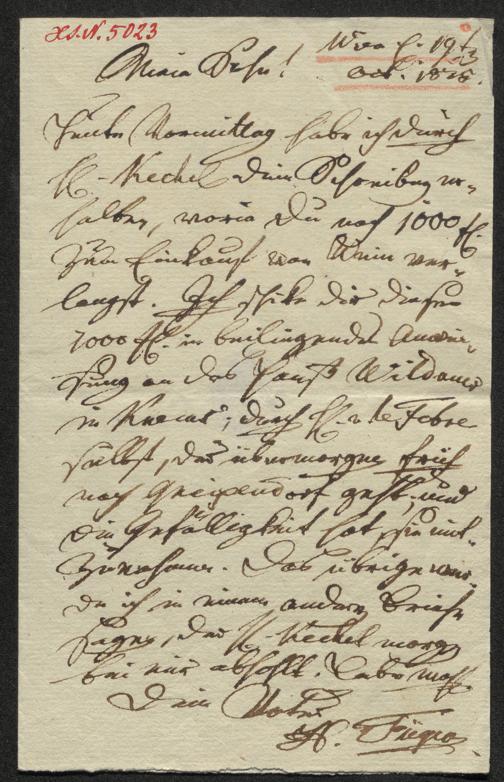 H.I.N. 5023
Wien d. 19t
Oct. 1815.
Mein Sohn!
Heute Vormittag habe ich durch
H. Keckel dein Schreiben er-
halten, worin du noch 1000 fl.
zum Einkauf von Wein ver-
langst. Ich schike dir diese
1000 fl. in beiliegender Anwei-
sung an das Hauß Wildauer
in Krems, durch H. v. le Febre
selbst, der übermorgen früh
nach Greipendorf geht, und
die Gefälligkeit hat, sie mit-
zunehmen. Das übrige wer-
de ich in einem andern Briefe
sagen, den H. Keckel morgen
bei mir abhohlt. Lebe wohl
Dein Vater
H. Füger